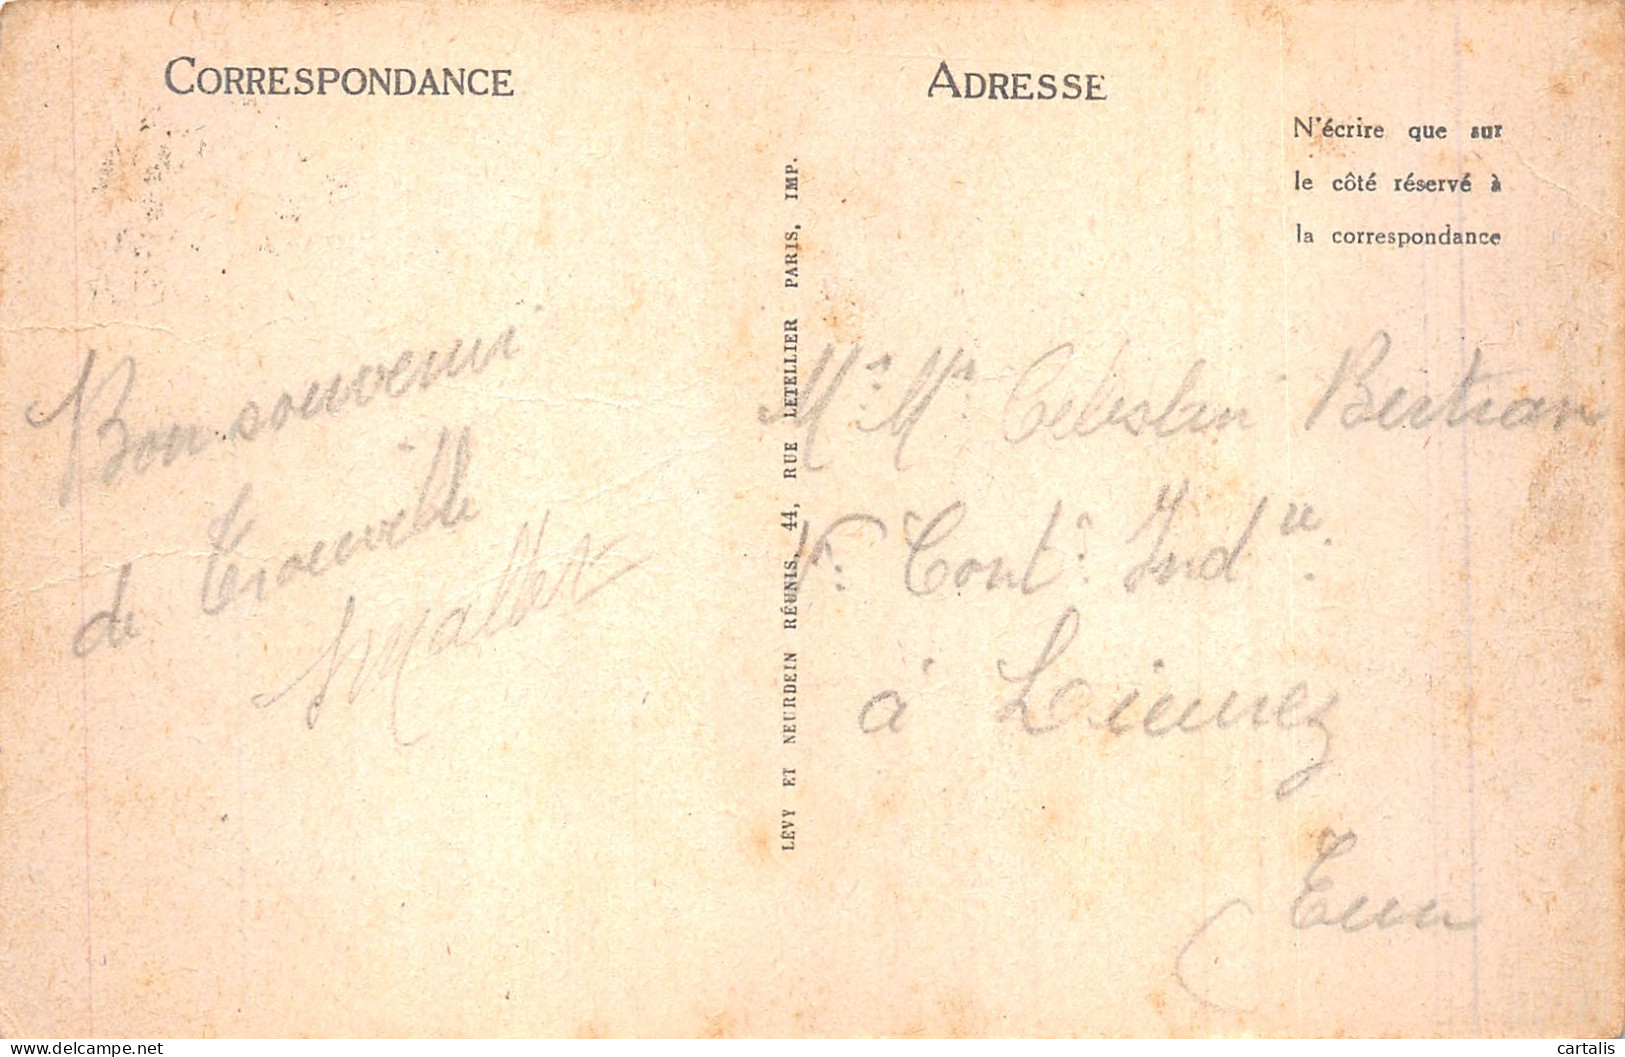 CORRESPONDANCE
ADRESSE
N'écrire que sur
le côté réservé à
la correspondance
LÉVY ET NEURDEIN RÉUNIS, 44, RUE LETELLIER PARIS, IMP.
Bon souvenir
de Trouville
Mr. Mr. Celestin Bertran
Vr. Cont. Indre.
à
cartalis
delcampe.net